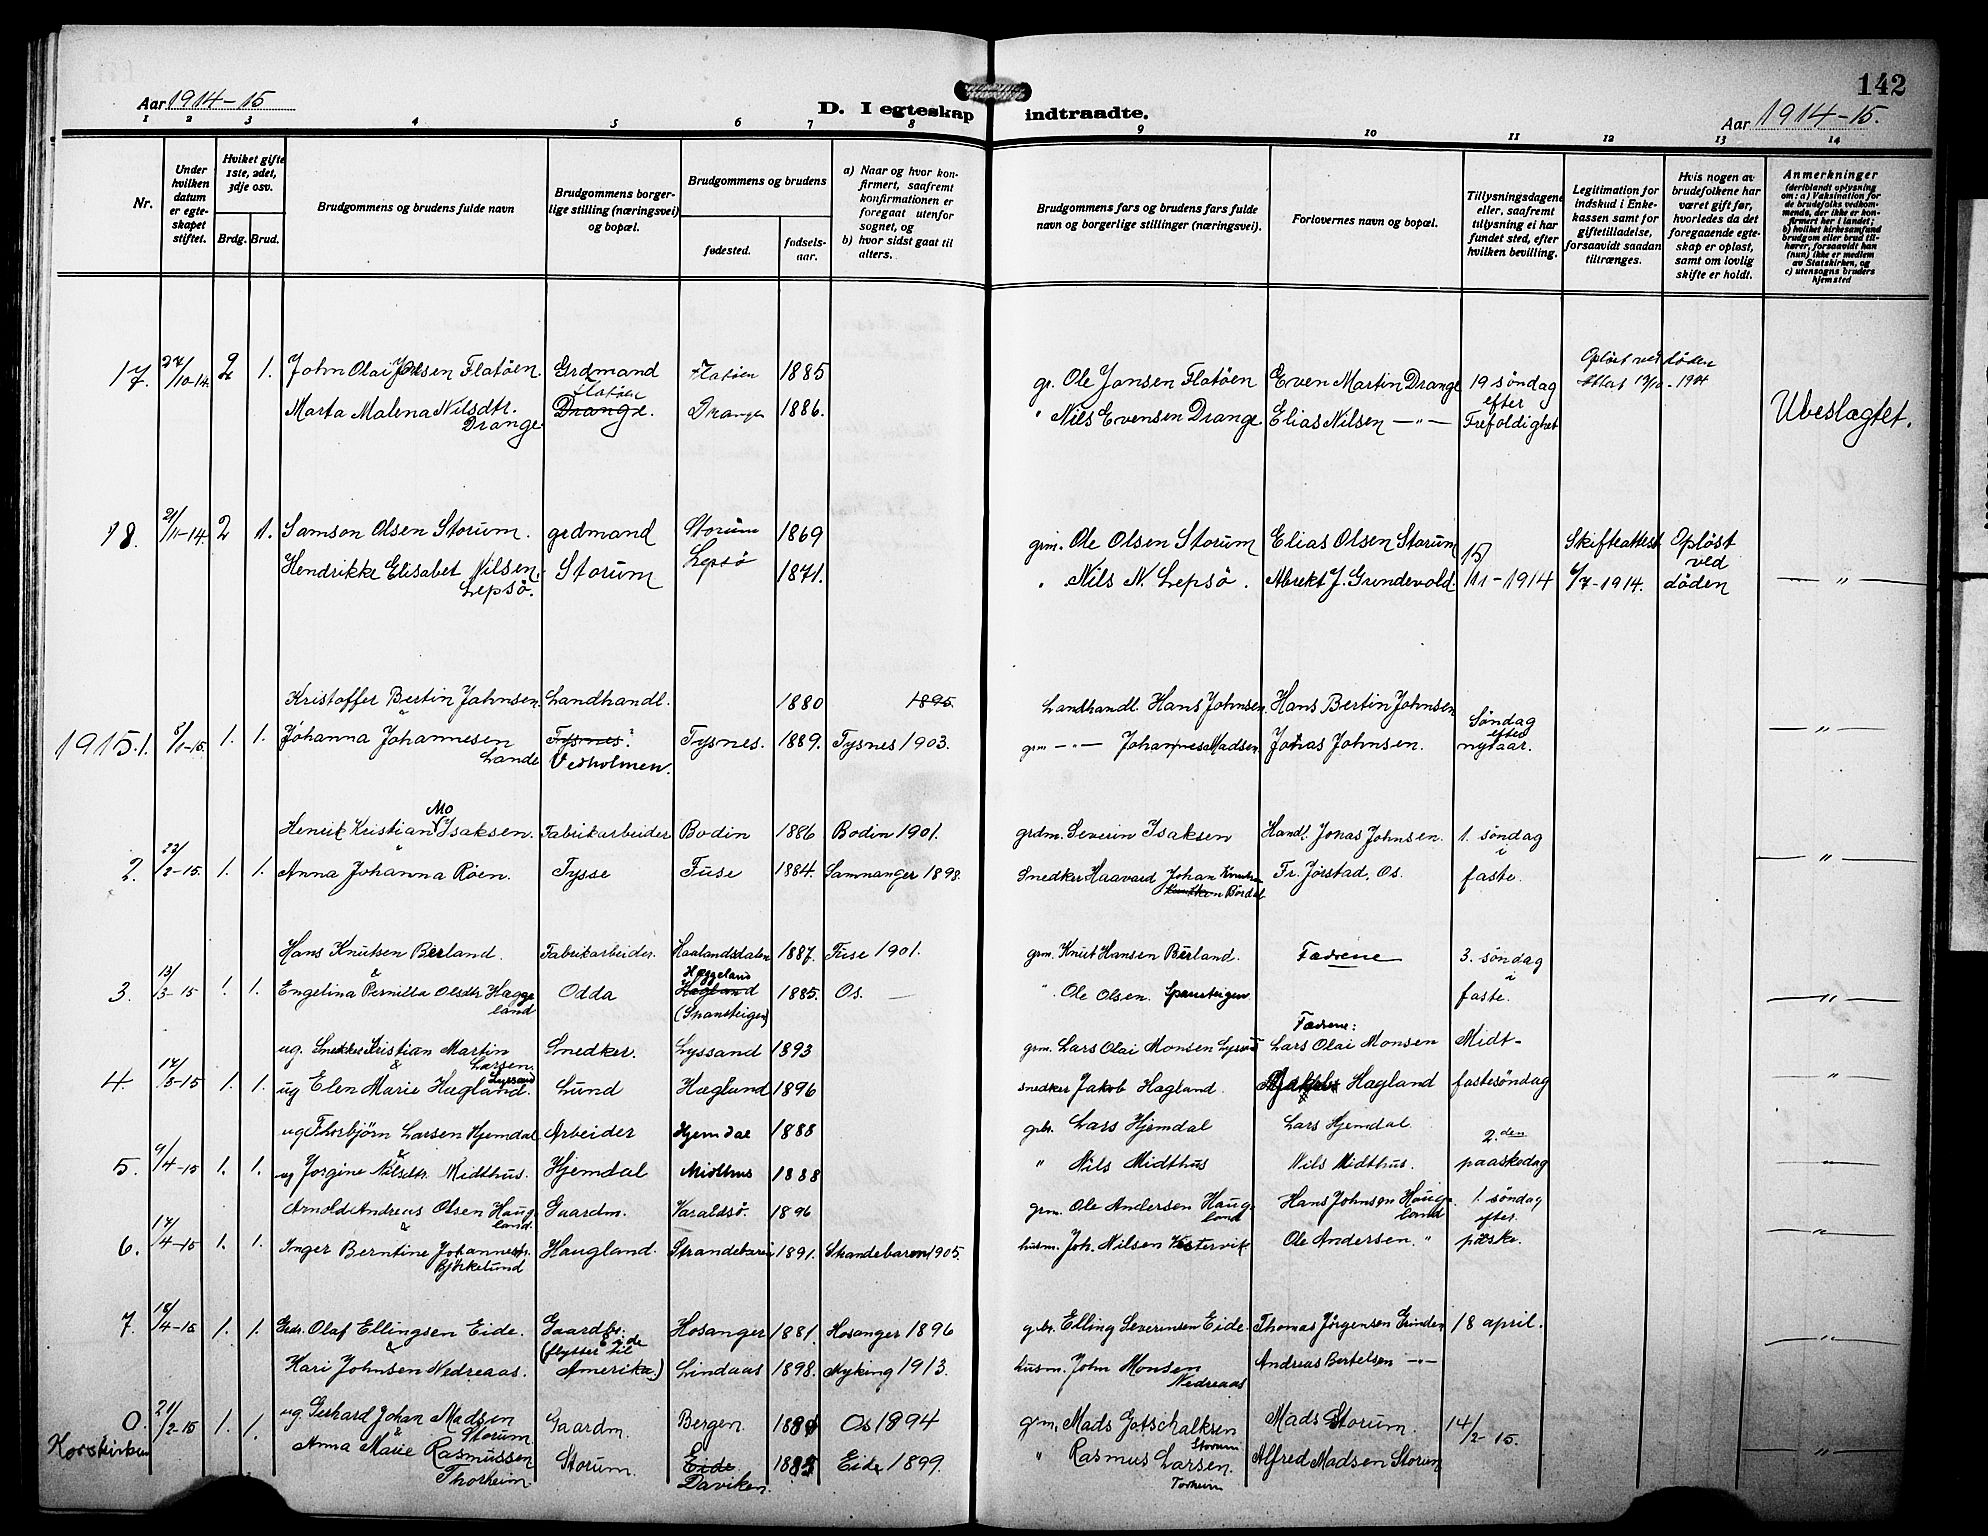 Aar 1914-15
D. I egteskap indtraadte.
142
Aar 1914-15.
1 2 3 4 5 6 7 8 9 10 11 12 13 14
Nr.
Under hvilken datum er egteskapet stiftet.
Hvilket gifte 1ste, 2det, 3dje osv.
Brdg. Brud.
Brudgommens og brudens fulde navn
Brudgommens borgerlige stilling (næringsvei) og bopæl.
Brudgommens og brudens
fødested.
fødselsaar.
a) Naar og hvor konfirmert, saafremt konfirmationen er foregaat utenfor sognet, og
b) hvor sidst gaat til alters.
Brudgommens fars og brudens fars fulde navn og borgerlige stillinger (næringsvei).
Forlovernes navn og bopæl.
Tillysningsdagene eller, saafremt tillysning ei har fundet sted, efter hvilken bevilling.
Legitimation for indskud i Enkekassen samt for giftetilladelse, forsaavidt saadan tiltrænges.
Hvis nogen av brudefolkene har været gift før, hvorledes da det foregaaende egteskap er opløst, samt om lovlig skifte er holdt.
Anmerkninger
(deriblandt oplysning om: a) Vaksination for de brudefolks vedkommende, der ikke er konfirmert her i landet; b) hvilket kirkesamfund brudgom eller brud tilhører, forsaavidt han (hun) ikke er medlem av Statskirken, og c) utensogns bruders hjemsted
17. 27/10-14 2 1. John Olai Olsen Flatöen. Grdmand Flatöen 1885 gr. Ole Jansen Flatöen Erven Martin Drange 19 söndag Oplöst ved döden
Marta Malena Nilsdtr. Drange Flatöen Drange. Drangen 1886. " Nils Ervensen Drange Elias Nilsen —"— efter Trefoldighet Ubeslægtet.
18. 21/11-14. 2 1. Samson Olsen Storum. grdmand Storum 1869 grm. Ole Olsen Storum Elias Olsen Storum 15/11-1914 Skifteattest 6/7-1914. Oplöst ved döden
Hendrikke Elisabet Nilsen Lepsö. Storum Lepsö 1871. " Nils N. Lepsö. Albrekt J. Grindevold. —"—
Kristoffer Bertin Johnsen. Landhandl. 1880 1895. Landhandl. Hans Johnsen. Hans Bertin Johnsen Söndag
1915. 1. 8/1-15. 1. 1. & Johanna Johannesen Lande Tysnes. Vedholmen. Tysnes. 1889. Tysnes 1903. grm —"— Johannes Madsen Jonas Johnsen. efter nytaar. —"—
Henrik Kristian Mo Isaksen. Fabrikarbeider Bodin 1886 Bodin 1901. grdm. Severin Isaksen Handl. Jonas Johnsen. 1. söndag
2. 22/2-15. 1. 1. & Anna Johanna Röen. Tysse Fuse 1884. Samnanger 1898. Snedker Haavard Johan Knutsen Bördal Fr. Jörstad, Os. i faste. —"—
Hans Knutsen Berland. Fabrikarbeider. Haalandsdalen 1887. Fuse 1901. grm. Knut Hansen Berland. Fædrene 3. söndag
3. 13/3-15 1. 1. & Engelina Pernilla Olsdtr Hæggeland Odda Hæggeland Hægland (Spansteigen) 1885. Os. — " Ole Olsen. Spansteigen i faste. —"—
ug. Snekker Kristian Martin Larsen Lyssand Snedker. Lyssand 1893 grm. Lars Olai Monsen Fædrene: Lars Olai Monsen Midt-
4. 17/3-15 1. 1. & ug Elen Marie Hægland. Lund Hægland 1896 snedker Jakob Hægland. Hægland fastesöndag "
ug Thorbjörn Larsen Hjemdal Arbeider Hjemdal 1888 grbr. Lars Hjemdal Lars Hjemdal. 2.den
5. 9/4-15 1. 1. & ug Jorgine Nilsdtr. Midthus. Hjemdal Midthus 1888 " Nils Midthus Nils Midthus. paaskedag —"—
Arnold Andreas Olsen Haugland. Gaardm. Varaldsö. 1896 grm. Ole Andersen Haugland Hans Johnsen Haugland 1. söndag
6. 17/4-15 1. 1. & Inger Berntine Johannesdtr. Björkelund Haugland. Strandebarm 1891. Strandebarm 1905. husm. Joh. Nilsen Vestervik Ole Andersen. " efter påske. —"—
7. 18/4-15 1. 1. Grdr. Olaf Ellingsen Eide. Gaardbr. Eide Hosanger 1881. Hosanger 1896 grbr. Elling Severinsen Eide. Thomas Jörgensen Grinden 18 april.
& Kari Johnsen Nedreaas. (flytter til Amerika) Lindaas 1898. Myking 1913. husm. John Monsen Nedreaas Andreas Bertelsen —"— —"—
0. 21/2-15 1. 1. ug. Gerhard Johan Madsen Storum Gaardm. Bergen Os 1894 grm. Mads Gotschalksen Storum Mads Storum. 14/2-15.
Korskirken & Anna Marie Rasmussen Thorheim Storum. Eide Daviken. Eide 1899. " Rasmus Larsen Torheim Alfred Madsen Storum —"—